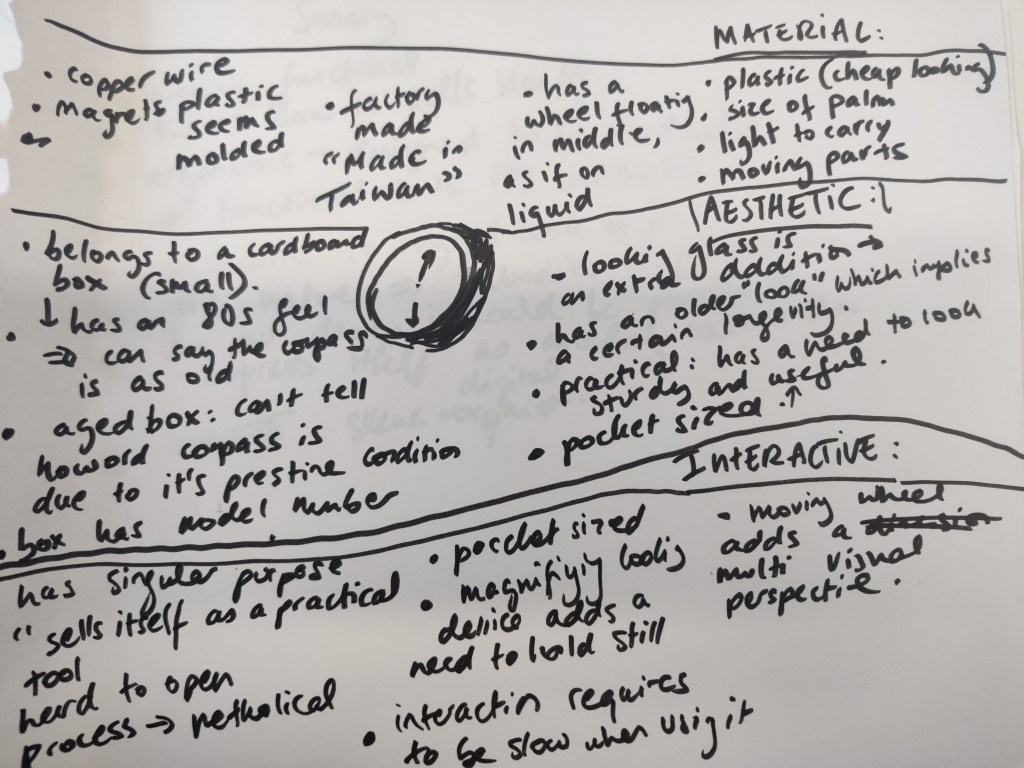 MATERIAL:
• copper wire
• magnets plastic
seems
molded
• factory
made
"Made in
Taiwan"
• has a
wheel floatig
in middle,
as if on
liquid
• plastic (cheap looking)
• size of palm
• light to carry
• moving parts
AESTHETIC:
• belongs to a cardboard
box (small).
↓ has an 80s feel
⇒ can say the compass
is as old
• aged box: can't tell
how old compass is
due to it's prestine condition
• box has model number
• looking glass is
an extra addition →
• has an older "look" which implies
a certain longevity.
• practical: has a need to look
sturdy and useful.
• pocket sized ↑
INTERACTIVE:
has singular purpose
" sells itself as a practical
tool
hard to open
process → methodical
• pocket sized
• magnifyig lookig
device adds a
need to hold still
• interaction requires
to be slow when usig it
• moving wheel
adds a
multi visual
perspective.